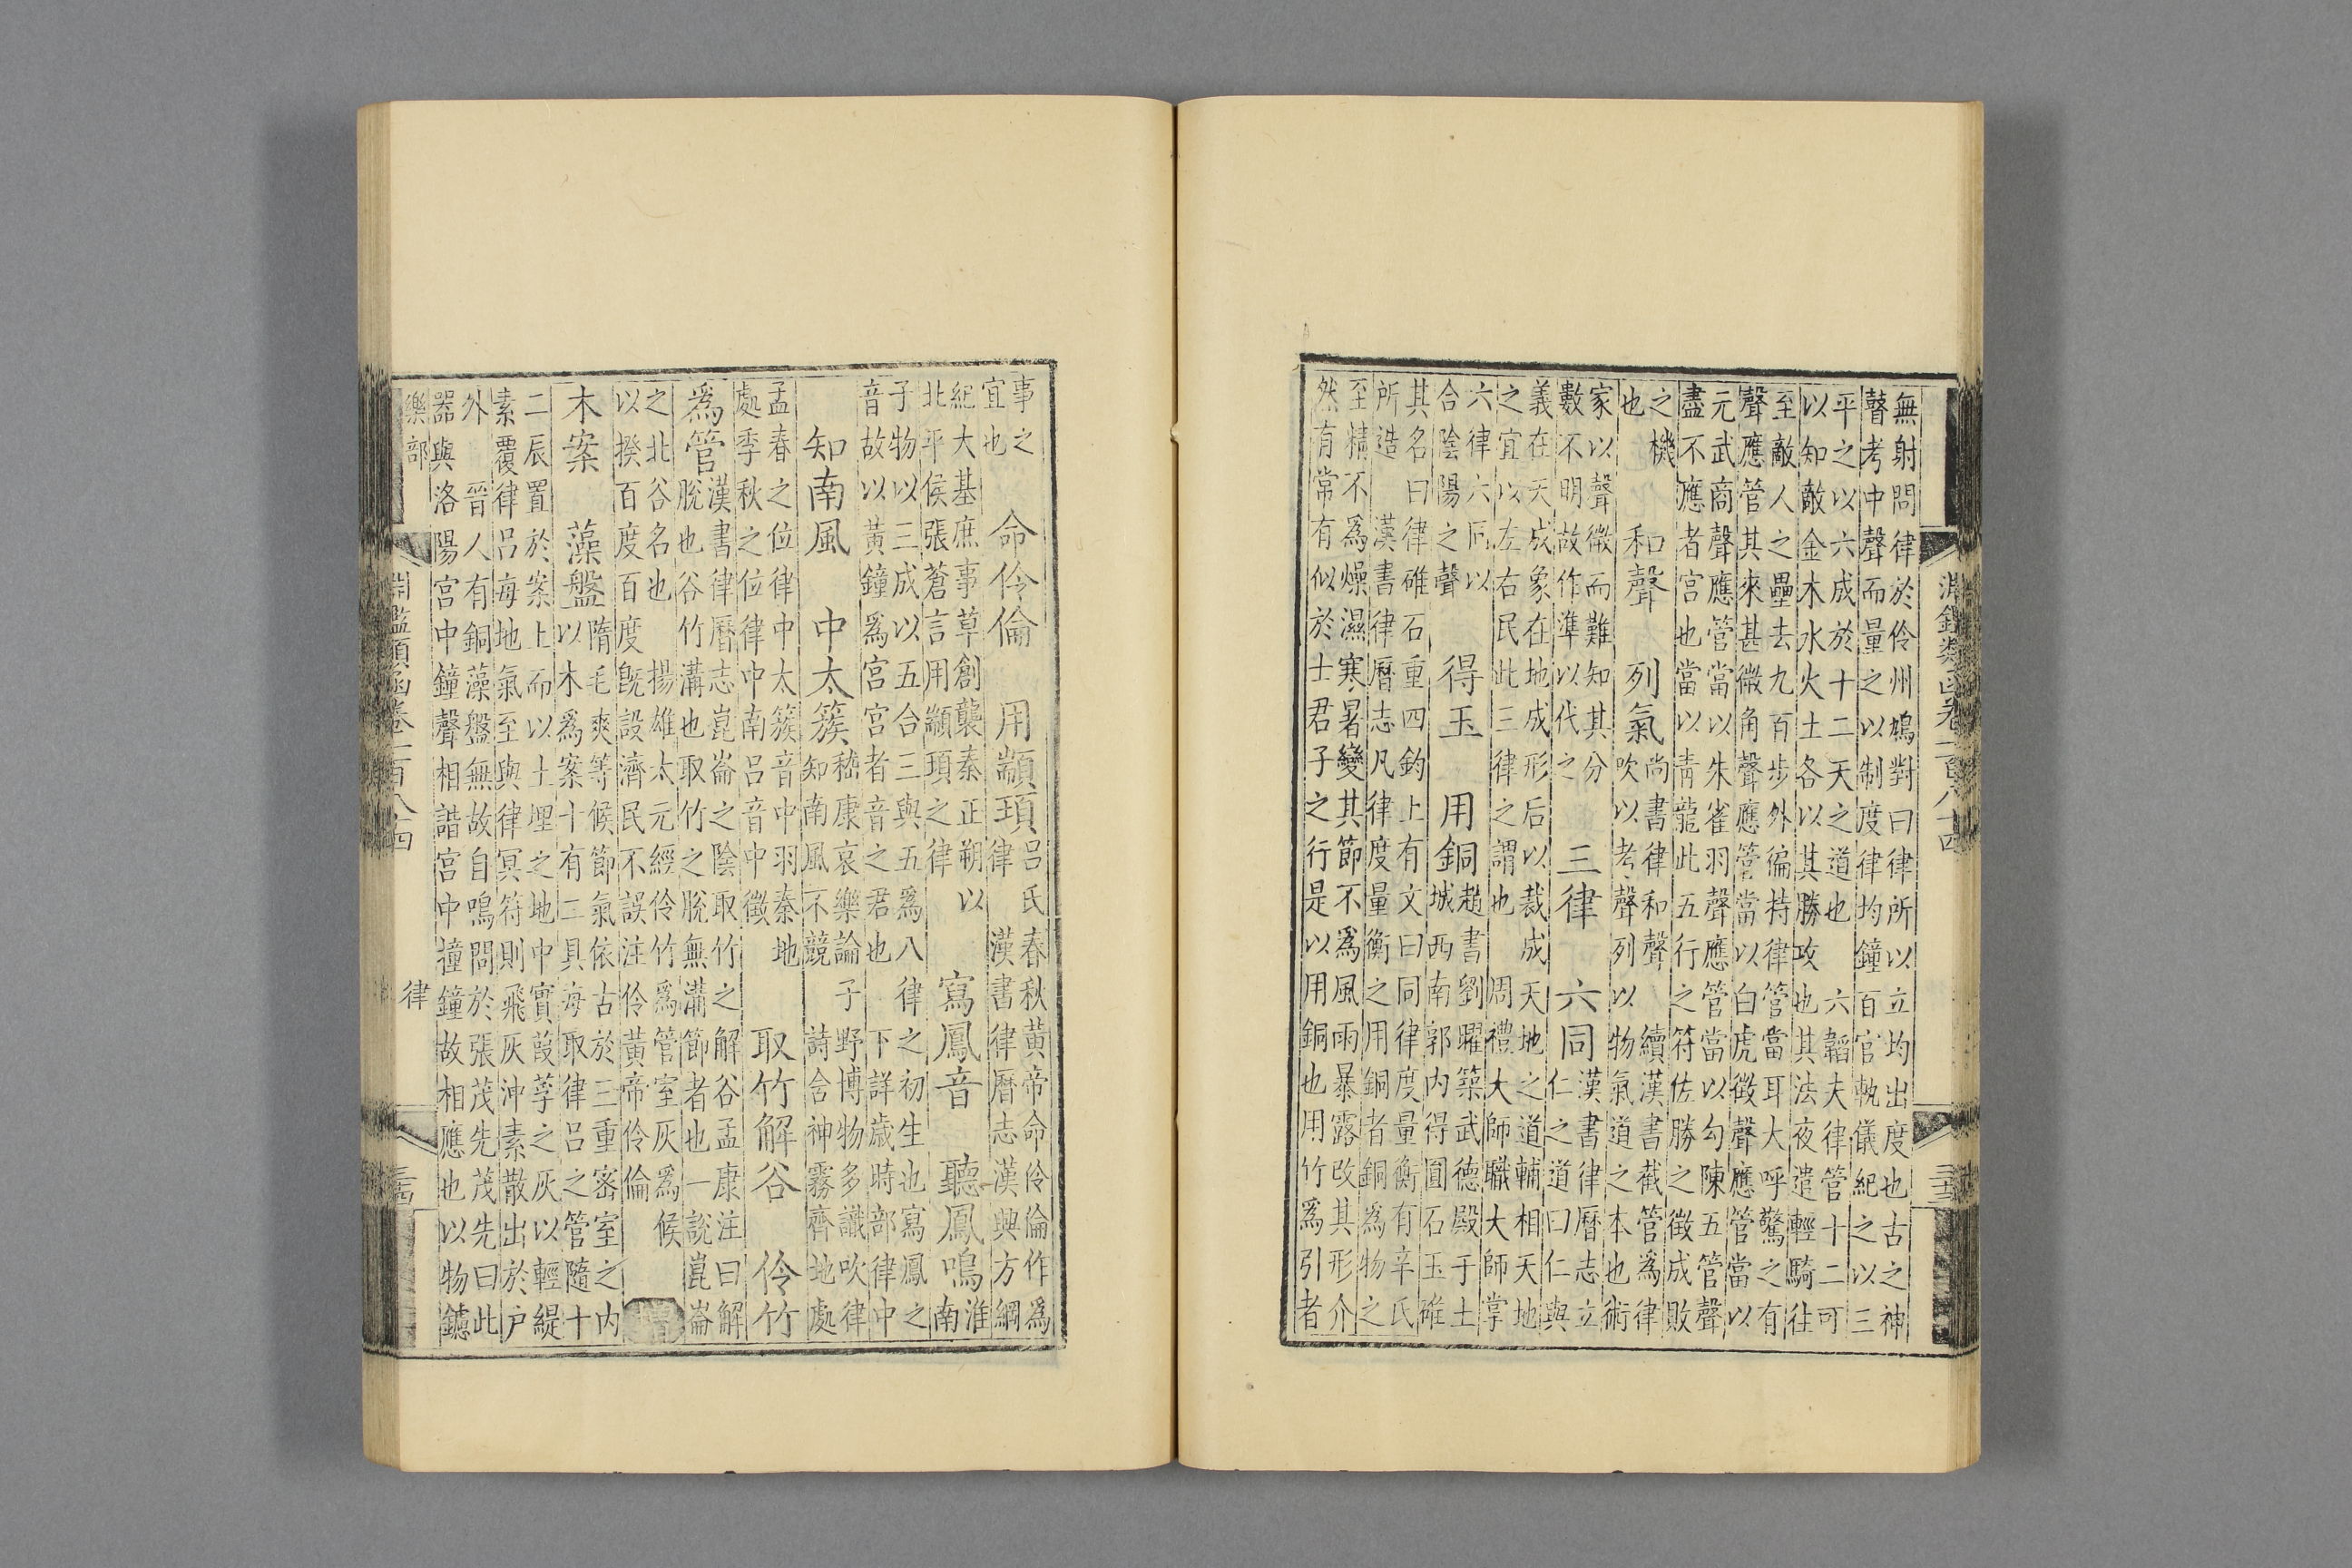 淵鑑類函卷一百八十四
無射問律於伶州鳩對曰律所以立均出度也古之神
瞽考中聲而量之以制度律均鐘百官軌儀紀之以三
平之以六成於十二天之道也 六韜夫律管十二可
以知敵金木水火土各以其勝攻也其法夜遣輕騎往
至敵人之壘去九百步外徧持律管當耳大呼驚之有
聲應管其來甚微角聲應管當以白虎徵聲應管當以
元武商聲應管當以朱雀羽聲應管當以勾陳五管聲
盡不應者宮也當以青龍此五行之符佐勝之徵成敗
之機
也
和聲 列氣
尚書律和聲 續漢書截管爲律
吹以考聲列以物氣道之本也術
家以聲微而難知其分
數不明故作準以代之
三律 六同
漢書律曆志立
仁之道曰仁與
義在天成象在地成形后以裁成天地之道輔相天地
之宜以左右民此三律之謂也 周禮大師職大師掌
六律六同以
合陰陽之聲
得玉 用銅
趙書劉曜築武德殿于土
城西南郭內得圓石玉碓
其名曰律碓石重四鈞上有文曰同律度量衡有辛氏
所造 漢書律曆志凡律度量衡之用銅者銅爲物之
至精不爲燥濕寒暑變其節不爲風雨暴露改其形介
然有常有似於士君子之行是以用銅也用竹爲引者
事之
宜也
命伶倫 用顓頊
呂氏春秋黃帝命伶倫作爲
律 漢書律曆志漢興方綱
紀大基庶事草創襲秦正朔以
北平侯張蒼言用顓頊之律
寫鳳音 聽鳳鳴
淮
南
子物以三成以五合三與五爲八律之初生也寫鳳之
音故以黃鐘爲宮宮者音之君也 下詳歲時部律中
知南風 中太簇
嵇康哀樂論子野博物多識吹律
知南風不競 詩含神霧齊地處
孟春之位律中太簇音中羽秦地
處季秋之位律中南呂音中徵
取竹解谷 伶竹
爲管
漢書律曆志崑崙之陰取竹之解谷孟康注曰解
脫也谷竹溝也取竹之脫無溝節者也一說崑崙
之北谷名也 揚雄太元經伶竹爲管室灰爲候
以揆百度百度旣設濟民不誤注伶黃帝伶倫
增
木案 藻盤
隋毛爽等候節氣依古於三重密室之內
以木爲案十有二具每取律呂之管隨十
二辰置於案上而以土埋之地中實葭莩之灰以輕緹
素覆律呂每地氣至與律冥符則飛灰沖素散出於戶
外 晉人有銅藻盤無故自鳴問於張茂先茂先曰此
器與洛陽宮中鐘聲相諧宮中撞鐘故相應也以物鑢
樂部 律
淵鑑類函卷一百八十四